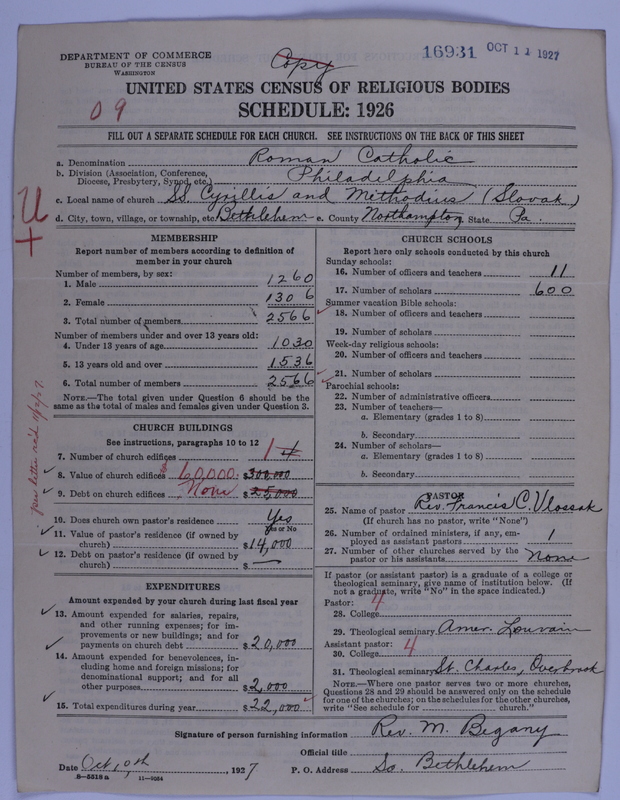 16931 OCT 11 1927
Copy
DEPARTMENT OF COMMERCE
BUREAU OF THE CENSUS
WASHINGTON
UNITED STATES CENSUS OF RELIGIOUS BODIES
09
SCHEDULE: 1926
FILL OUT A SEPARATE SCHEDULE FOR EACH CHURCH. SEE INSTRUCTIONS ON THE BACK OF THIS SHEET
a. Denomination Roman Catholic
b. Division (Association, Conference, Diocese, Presbytery, Synod, etc.) Philadelphia
c. Local name of church SS. Cyrillis and Methodius (Slovak)
d. City, town, village, or township, etc. Bethlehem e. County Northampton State Pa.
U
+
MEMBERSHIP
Report number of members according to definition of
member in your church
Number of members, by sex:
1. Male 1260
2. Female 1306
3. Total number of members 2566
Number of members under and over 13 years old:
4. Under 13 years of age 1030
5. 13 years old and over 1536
6. Total number of members 2566
NOTE.—The total given under Question 6 should be the
same as the total of males and females given under Question 3.
CHURCH BUILDINGS
See instructions, paragraphs 10 to 12
7. Number of church edifices 1 4
8. Value of church edifices $60,000. $300,000
9. Debt on church edifices None $25,000
10. Does church own pastor's residence Yes
Yes or No
11. Value of pastor's residence (if owned by
church) $14,000
12. Debt on pastor's residence (if owned by
church) $ —
EXPENDITURES
Amount expended by your church during last fiscal year
13. Amount expended for salaries, repairs,
and other running expenses; for im-
provements or new buildings; and for
payments on church debt $20,000
14. Amount expended for benevolences, in-
cluding home and foreign missions; for
denominational support; and for all
other purposes $2,000
15. Total expenditures during year $22,000
CHURCH SCHOOLS
Report here only schools conducted by this church
Sunday schools:
16. Number of officers and teachers 11
17. Number of scholars 600
Summer vacation Bible schools:
18. Number of officers and teachers
19. Number of scholars
Week-day religious schools:
20. Number of officers and teachers
21. Number of scholars
Parochial schools:
22. Number of administrative officers
23. Number of teachers—
a. Elementary (grades 1 to 8)
b. Secondary
24. Number of scholars—
a. Elementary (grades 1 to 8)
b. Secondary
PASTOR
25. Name of pastor Rev. Francis C. Vlossak
(If church has no pastor, write "None")
26. Number of ordained ministers, if any, em-
ployed as assistant pastors 1
27. Number of other churches served by the
pastor or his assistants None
If pastor (or assistant pastor) is a graduate of a college or
theological seminary, give name of institution below. (If
not a graduate, write "No" in the space indicated.)
Pastor:
28. College 4
29. Theological seminary Amer. Louvain
Assistant pastor:
30. College 4
31. Theological seminary St. Charles, Overbrook
NOTE.—Where one pastor serves two or more churches,
Questions 28 and 29 should be answered only on the schedule
for one of the churches; on the schedules for the other churches,
write "See schedule for church."
Signature of person furnishing information Rev. M. Begany
Official title
Date Oct. 10th, 1927 P. O. Address So. Bethlehem
8—5518a 11—9554